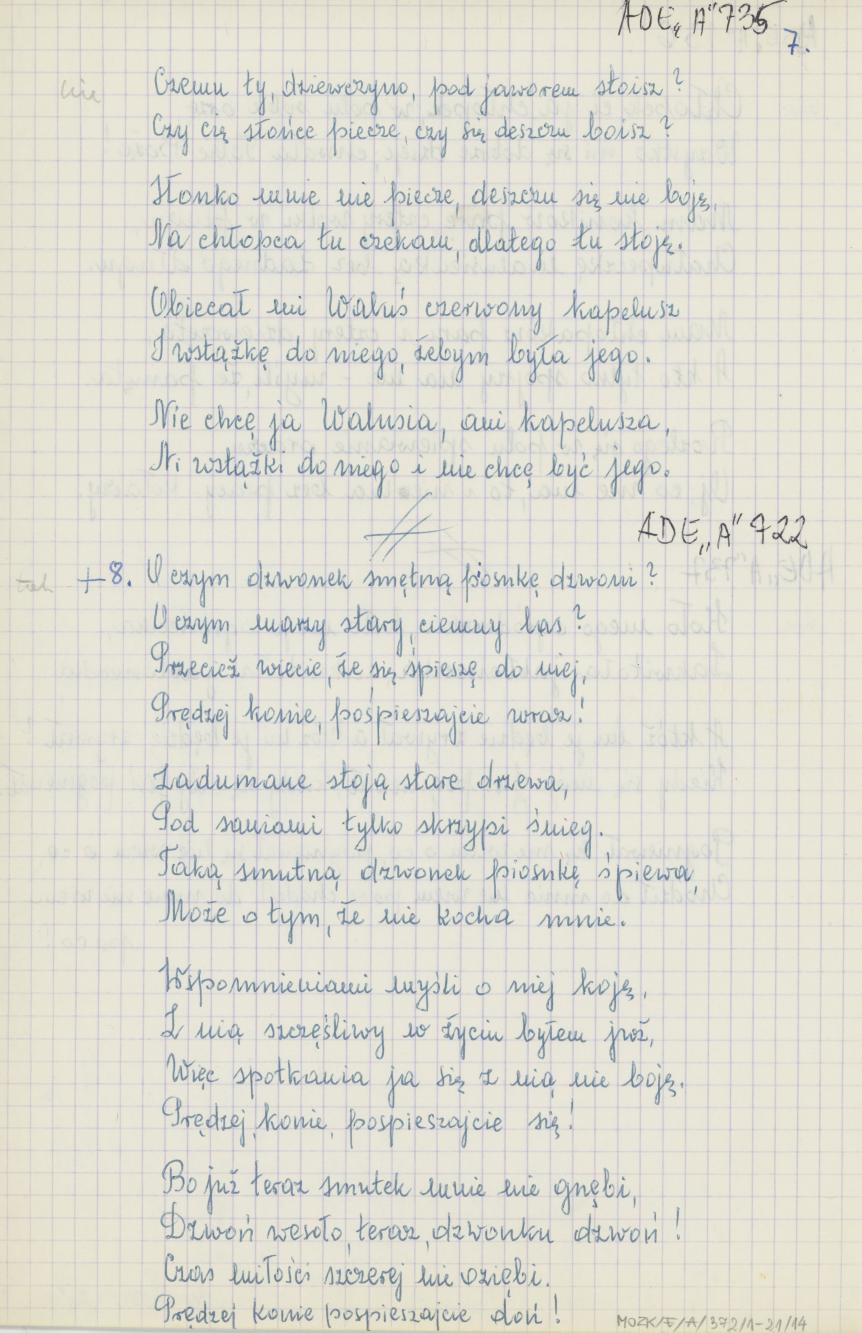 ADE„A" 735
7.
nie
Czemu ty, dziewczyno, pod jaworem stoisz?
Czy cię słońce piecze, czy się deszczu boisz?
Słonko mnie nie piecze, deszczu się nie boję,
Na chłopca tu czekam, dlatego tu stoję.
Obiecał mi Waluś czerwony kapelusz
I wstążkę do niego, żebym była jego.
Nie chcę ja Walusia, ani kapelusza,
Ni wstążki do niego i nie chcę być jego.
ADE„A" 722
tak +8. O czym dzwonek smętną piosnkę dzwoni?
O czym marzy stary, ciemny las?
Przecież wiecie, że się śpieszę do niej,
Prędzej konie, pośpieszajcie wraz!
Zadumane stoją stare drzewa,
Pod saniami tylko skrzypi śnieg.
Taką smutną dzwonek piosnkę śpiewa,
Może o tym, że nie kocha mnie.
Wspomnieniami myśli o niej koję,
Z nią szczęśliwy w życiu byłem już,
Więc spotkania ja się z nią nie boję.
Prędzej, konie, pospieszajcie się!
Bo już teraz smutek mnie nie gnębi,
Dzwoń wesoło, teraz, dzwonku dzwoń!
Czas miłości szczerej nie oziębi.
Prędzej konie pospieszajcie doń!
MOZK/E/A/372/1-21/14